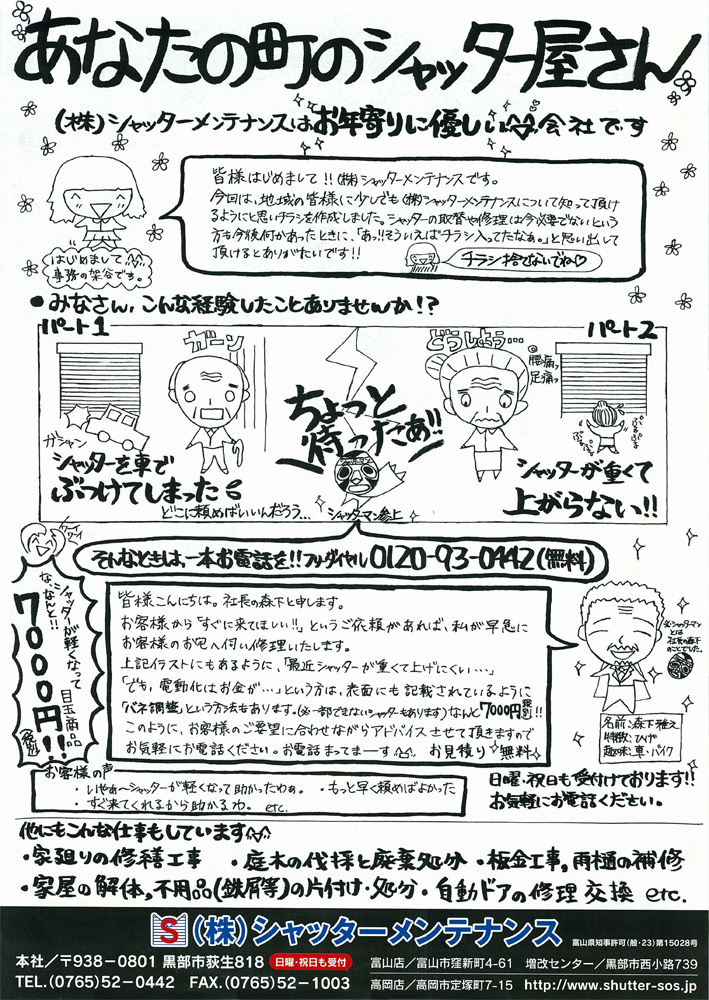 あなたの町のシャッター屋さん
(株)シャッターメンテナンスはお年寄りに優しい会社です
皆様はじめまして!!(株)シャッターメンテナンスです。
今回は、地域の皆様に少しでも(株)シャッターメンテナンスについて知って頂け
るようにと思いチラシを作成しました。シャッターの取替や修理は今必要でないという
方も今後何かあったときに、「あっ!!そういえばチラシ入ってたなぁ。」と思い出して
頂けるとありがたいです!!
チラシ捨てないでね♡
はじめまして
事務の架谷です。
●みなさん、こんな経験したことありませんか!?
パート1
パート2
ガーン
どうしよう…
腰痛っ
足痛っ
ガシャン
ぷるぷる
ぷるぷる
ちょっと
待ったぁ!!
シャッターを車で
ぶつけてしまった
どこに頼めばいいんだろう…
シャッターマン参上
シャッターが重くて
上がらない!!
そんなときは、一本お電話を!!フリーダイヤル0120-93-0442(無料)
シャッターが軽くなって
な、なんと!!
7000円!!
(税別)
目玉商品
皆様こんにちは。社長の森下と申します。
お客様から「すぐに来てほしい!!」というご依頼があれば、私が早急に
お客様のお宅へ伺い修理いたします。
上記イラストにもあるように、「最近シャッターが重くて上げにくい…」
「でも、電動化はお金が…」という方は、表面にも記載されているように
「バネ調整」という方法もあります。(※一部できないシャッターもあります)なんと7000円(税別)!!
このように、お客様のご要望に合わせながらアドバイスさせて頂きますので
お気軽にお電話ください。お電話まってまーす お見積り無料
※シャッターマン
とは
社長の森下
のことでした。
名前:森下雅之
特徴:ひげ
趣味:車・バイク
お客様の声
・いやぁ〜シャッターが軽くなって助かったわぁ。 ・もっと早く頼めばよかった
・すぐ来てくれるから助かるわ。 etc.
日曜・祝日も受付けております!!
お気軽にお電話ください。
他にもこんな仕事もしています
・家廻りの修繕工事 ・庭木の伐採と廃棄処分 ・板金工事,雨樋の補修
・家屋の解体,不用品(鉄屑等)の片付け・処分・自動ドアの修理交換 etc.
S (株)シャッターメンテナンス 富山県知事許可(般・23)第15028号
本社／〒938-0801 黒部市荻生818 日曜・祝日も受付 富山店／富山市窪新町4-61 増改センター／黒部市西小路739
TEL.(0765)52-0442 FAX.(0765)52-1003 高岡店／高岡市定塚町7-15 http://www.shutter-sos.jp